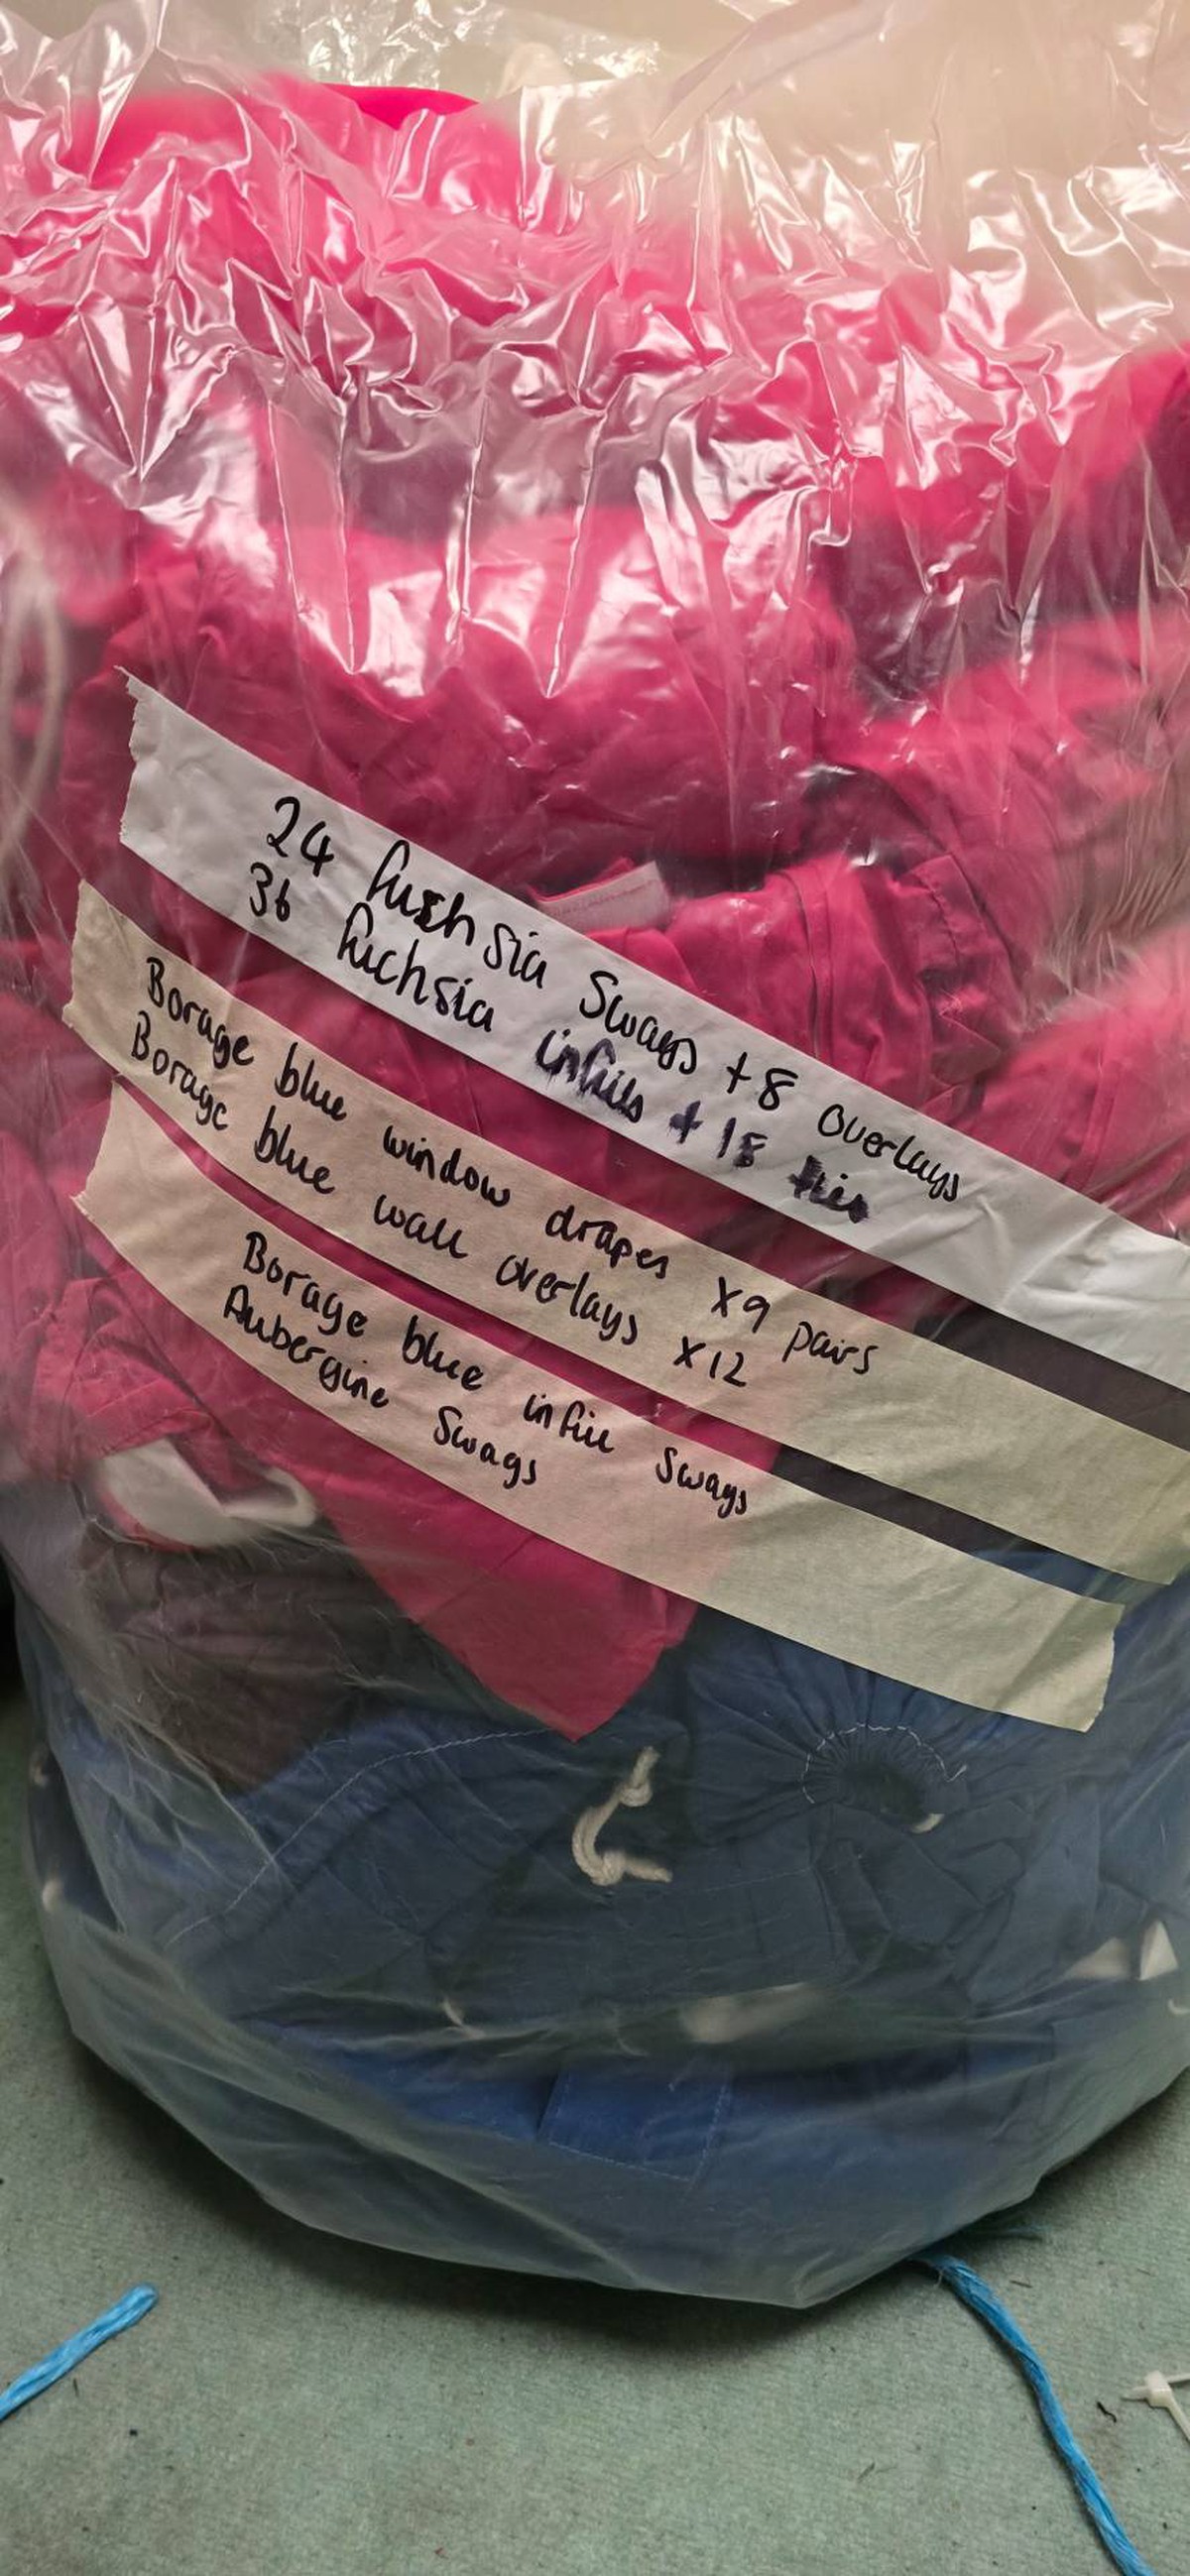 24 fuchsia Swags + 8 overlays
36 fuchsia infills + 18 ties
Borage blue window drapes x9 pairs
Borage blue wall overlays x12
Borage blue infill Swags
Aubergine Swags